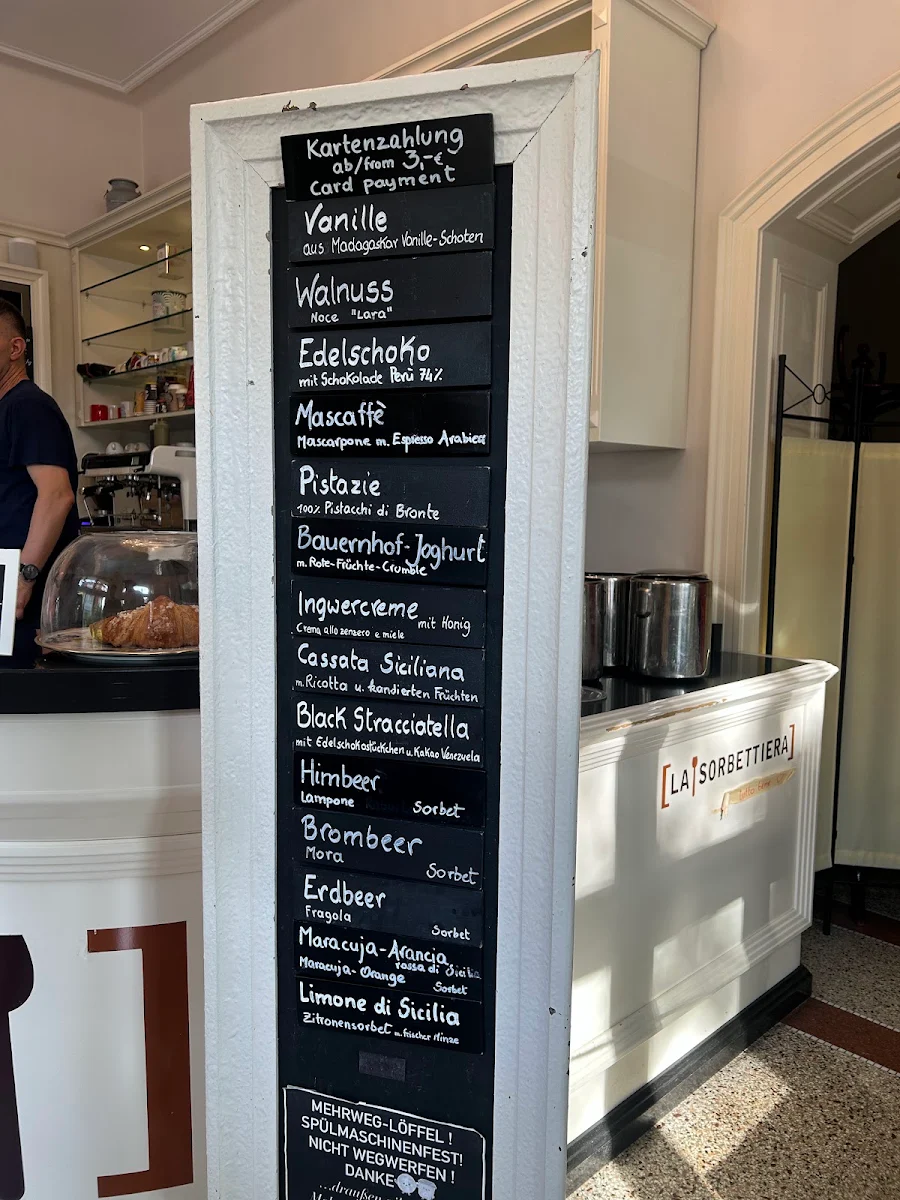 Kartenzahlung
ab/from 3,-€
Card payment
Vanille
aus Madagaskar Vanille-Schoten
Walnuss
Noce "Lara"
Edelschoko
mit Schokolade Perù 74%
Mascaffè
Mascarpone m. Espresso Arabica
Pistazie
100% Pistacchi di Bronte
Bauernhof-Joghurt
m. Rote-Früchte-Crumble
Ingwercreme mit Honig
Crema allo zenzero e miele
Cassata Siciliana
m. Ricotta u. kandierten Früchten
Black Stracciatella
mit Edelschokostückchen u. Kakao Venezuela
Himbeer
Lampone Sorbet
Brombeer
Mora
Sorbet
Erdbeer
Fragola
Sorbet
Maracuja-Arancia
rossa di Sicilia
Maracuja-Orange
Sorbet
Limone di Sicilia
Zitronensorbet m. frischer Minze
MEHRWEG-LÖFFEL !
SPÜLMASCHINENFEST!
NICHT WEGWERFEN !
DANKE
...draußen
[LA SORBETTIERA]